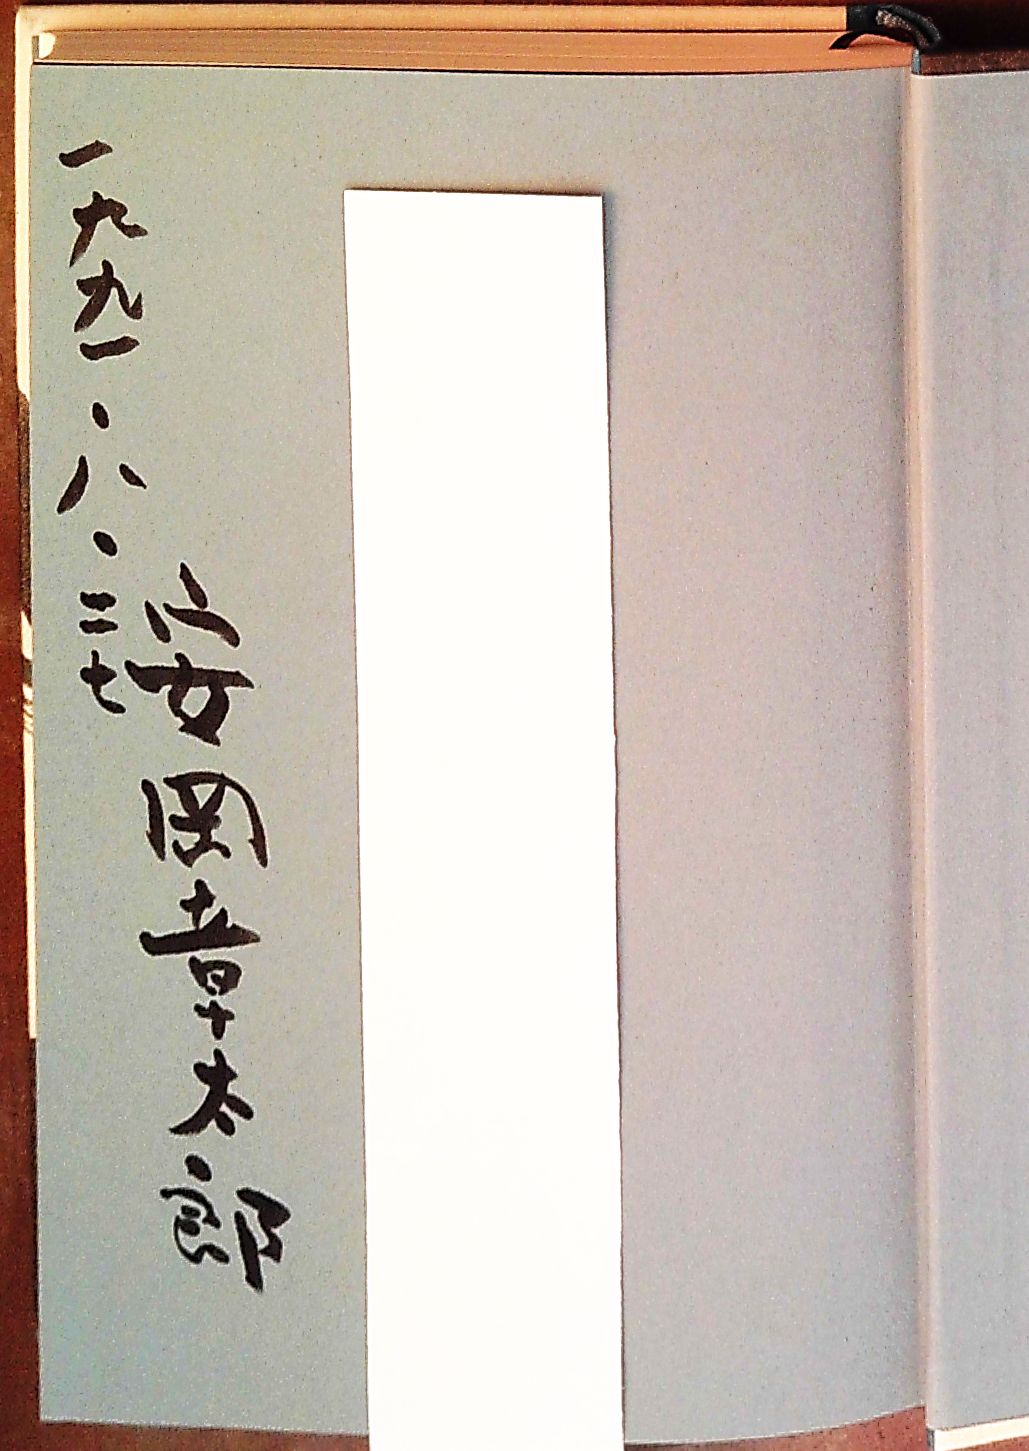 安岡章太郎
一九九一・八・二七